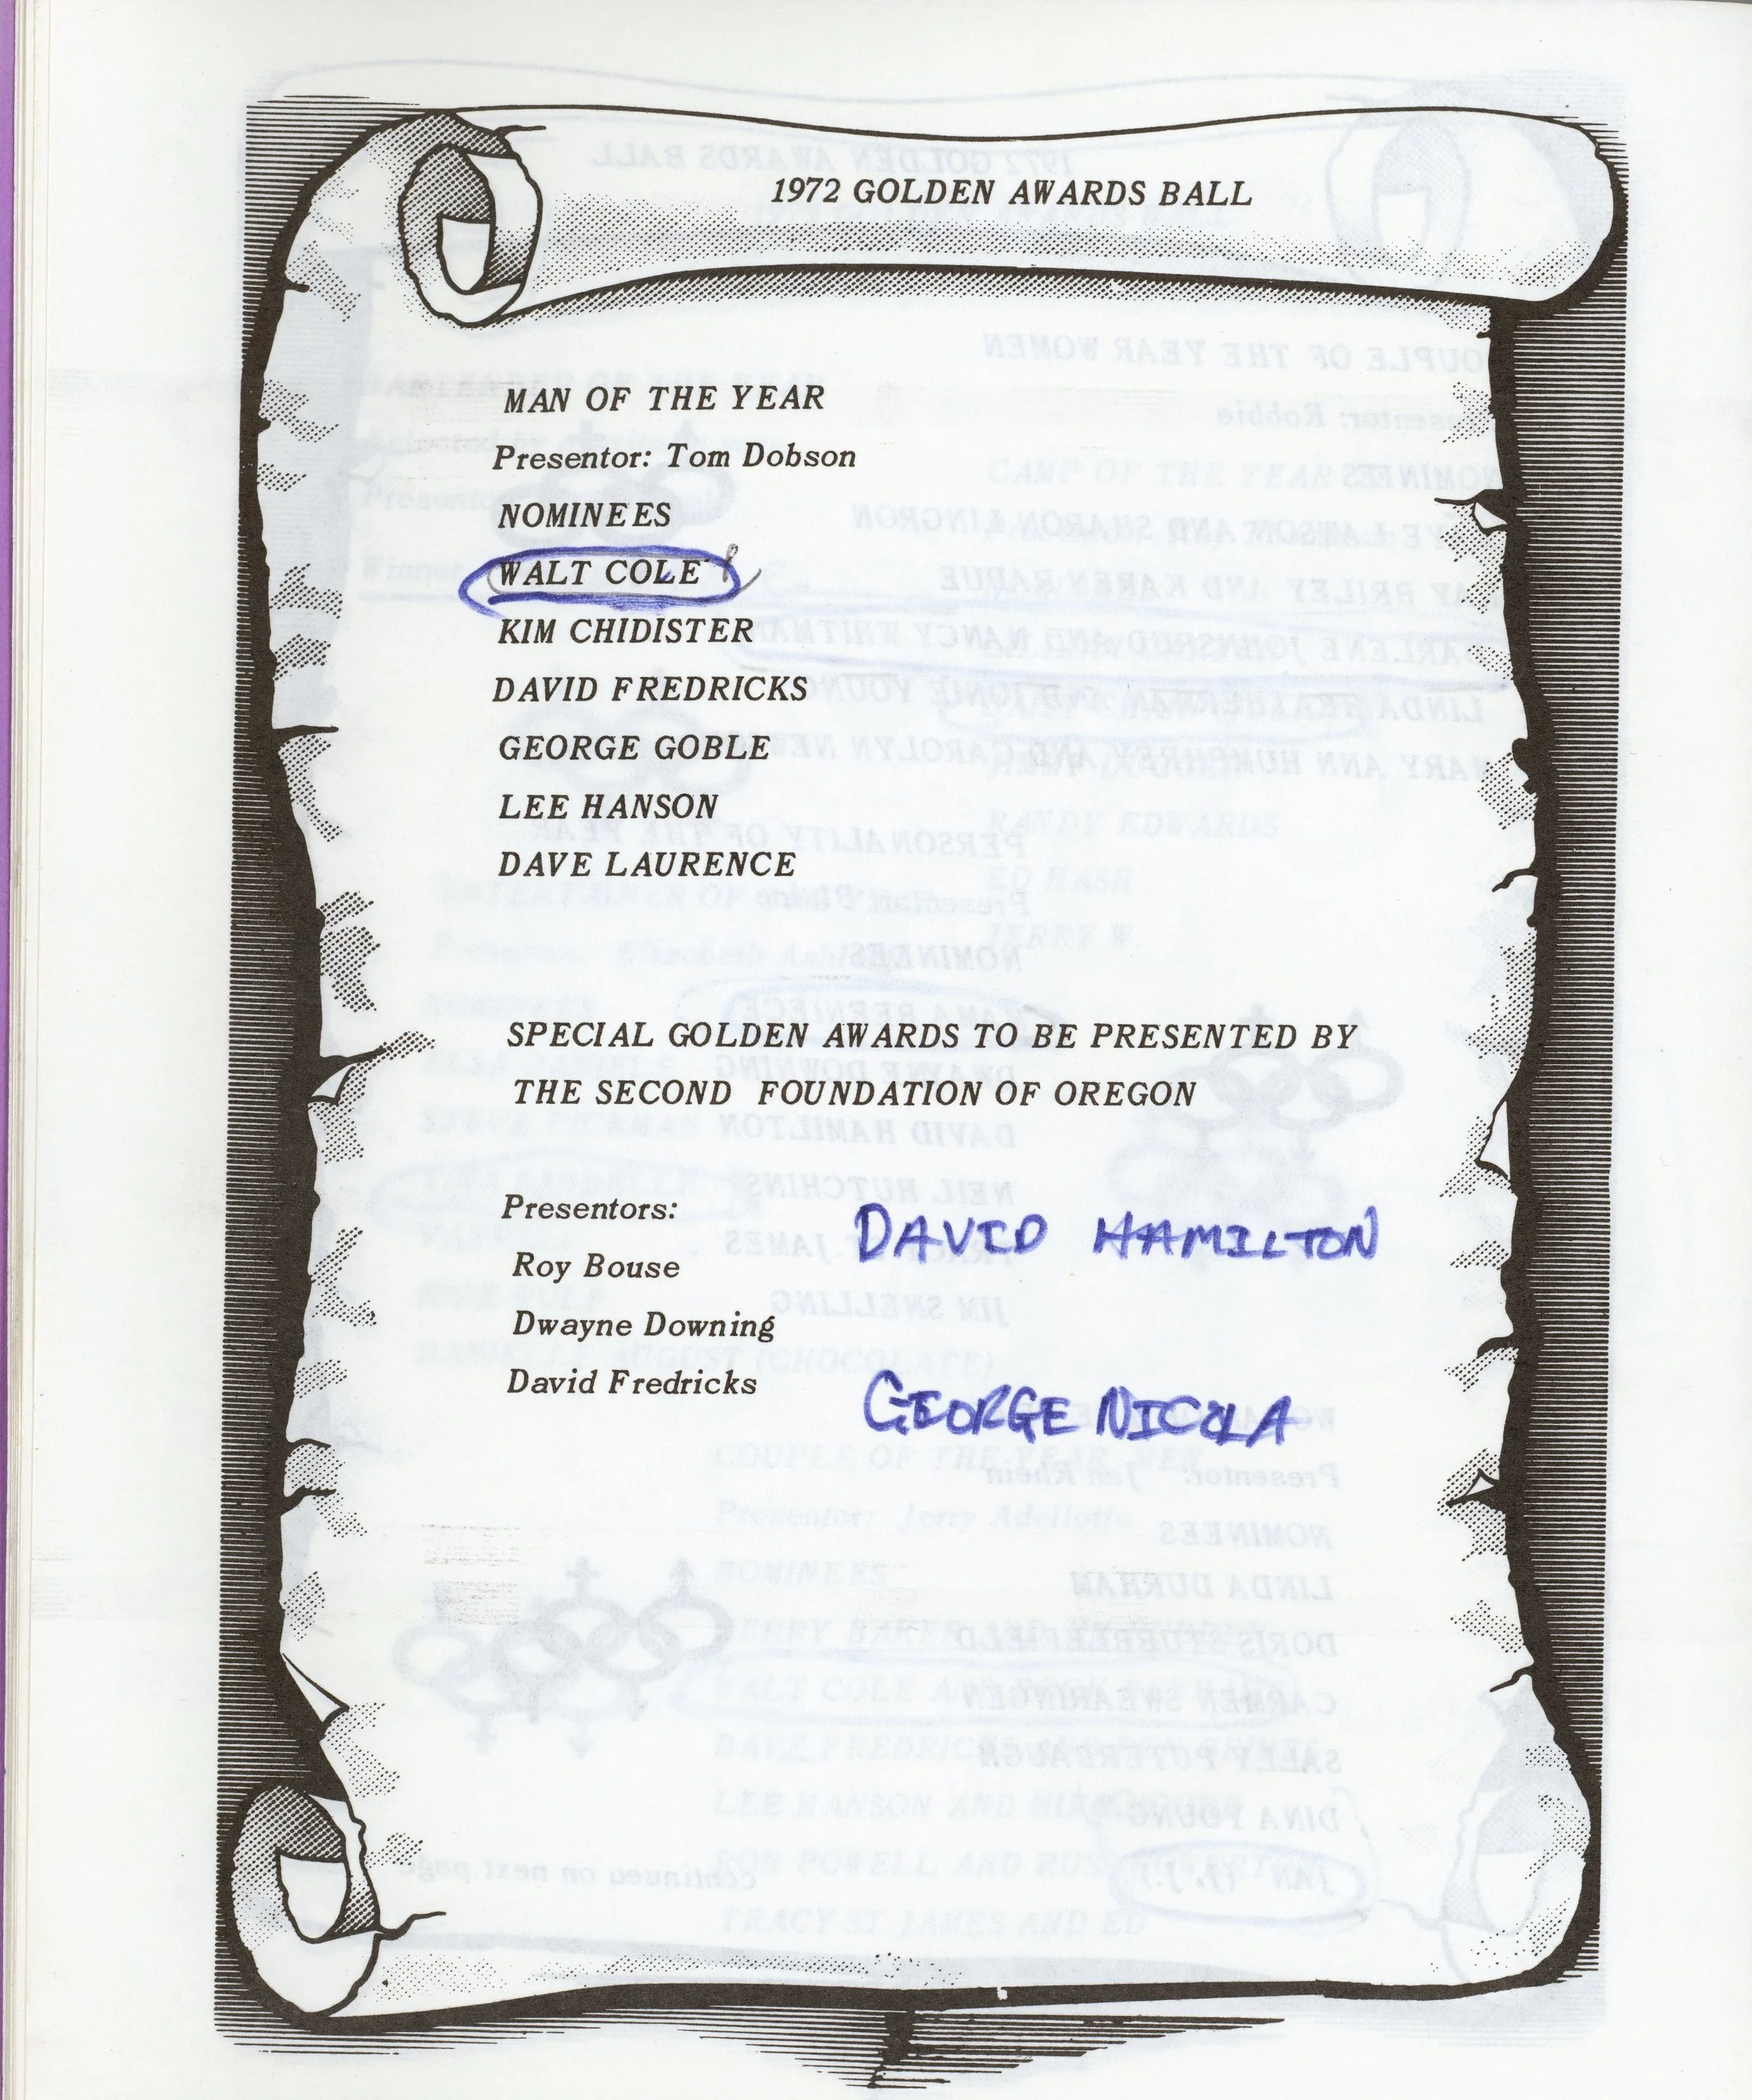 1972 GOLDEN AWARDS BALL
MAN OF THE YEAR
Presentor: Tom Dobson
NOMINEES
WALT COLE
KIM CHIDISTER
DAVID FREDRICKS
GEORGE GOBLE
LEE HANSON
DAVE LAURENCE
SPECIAL GOLDEN AWARDS TO BE PRESENTED BY
THE SECOND FOUNDATION OF OREGON
Presentors:
Roy Bouse
Dwayne Downing
David Fredricks
DAVID HAMILTON
GEORGE NICOLA